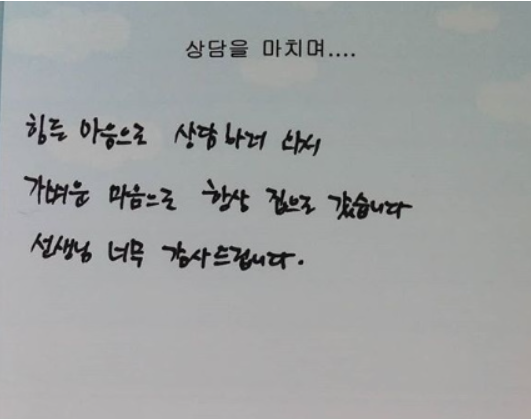 상담을 마치며....
힘든 마음으로 상담하러 와서
가벼운 마음으로 항상 집으로 갔습니다
선생님 너무 감사드립니다.